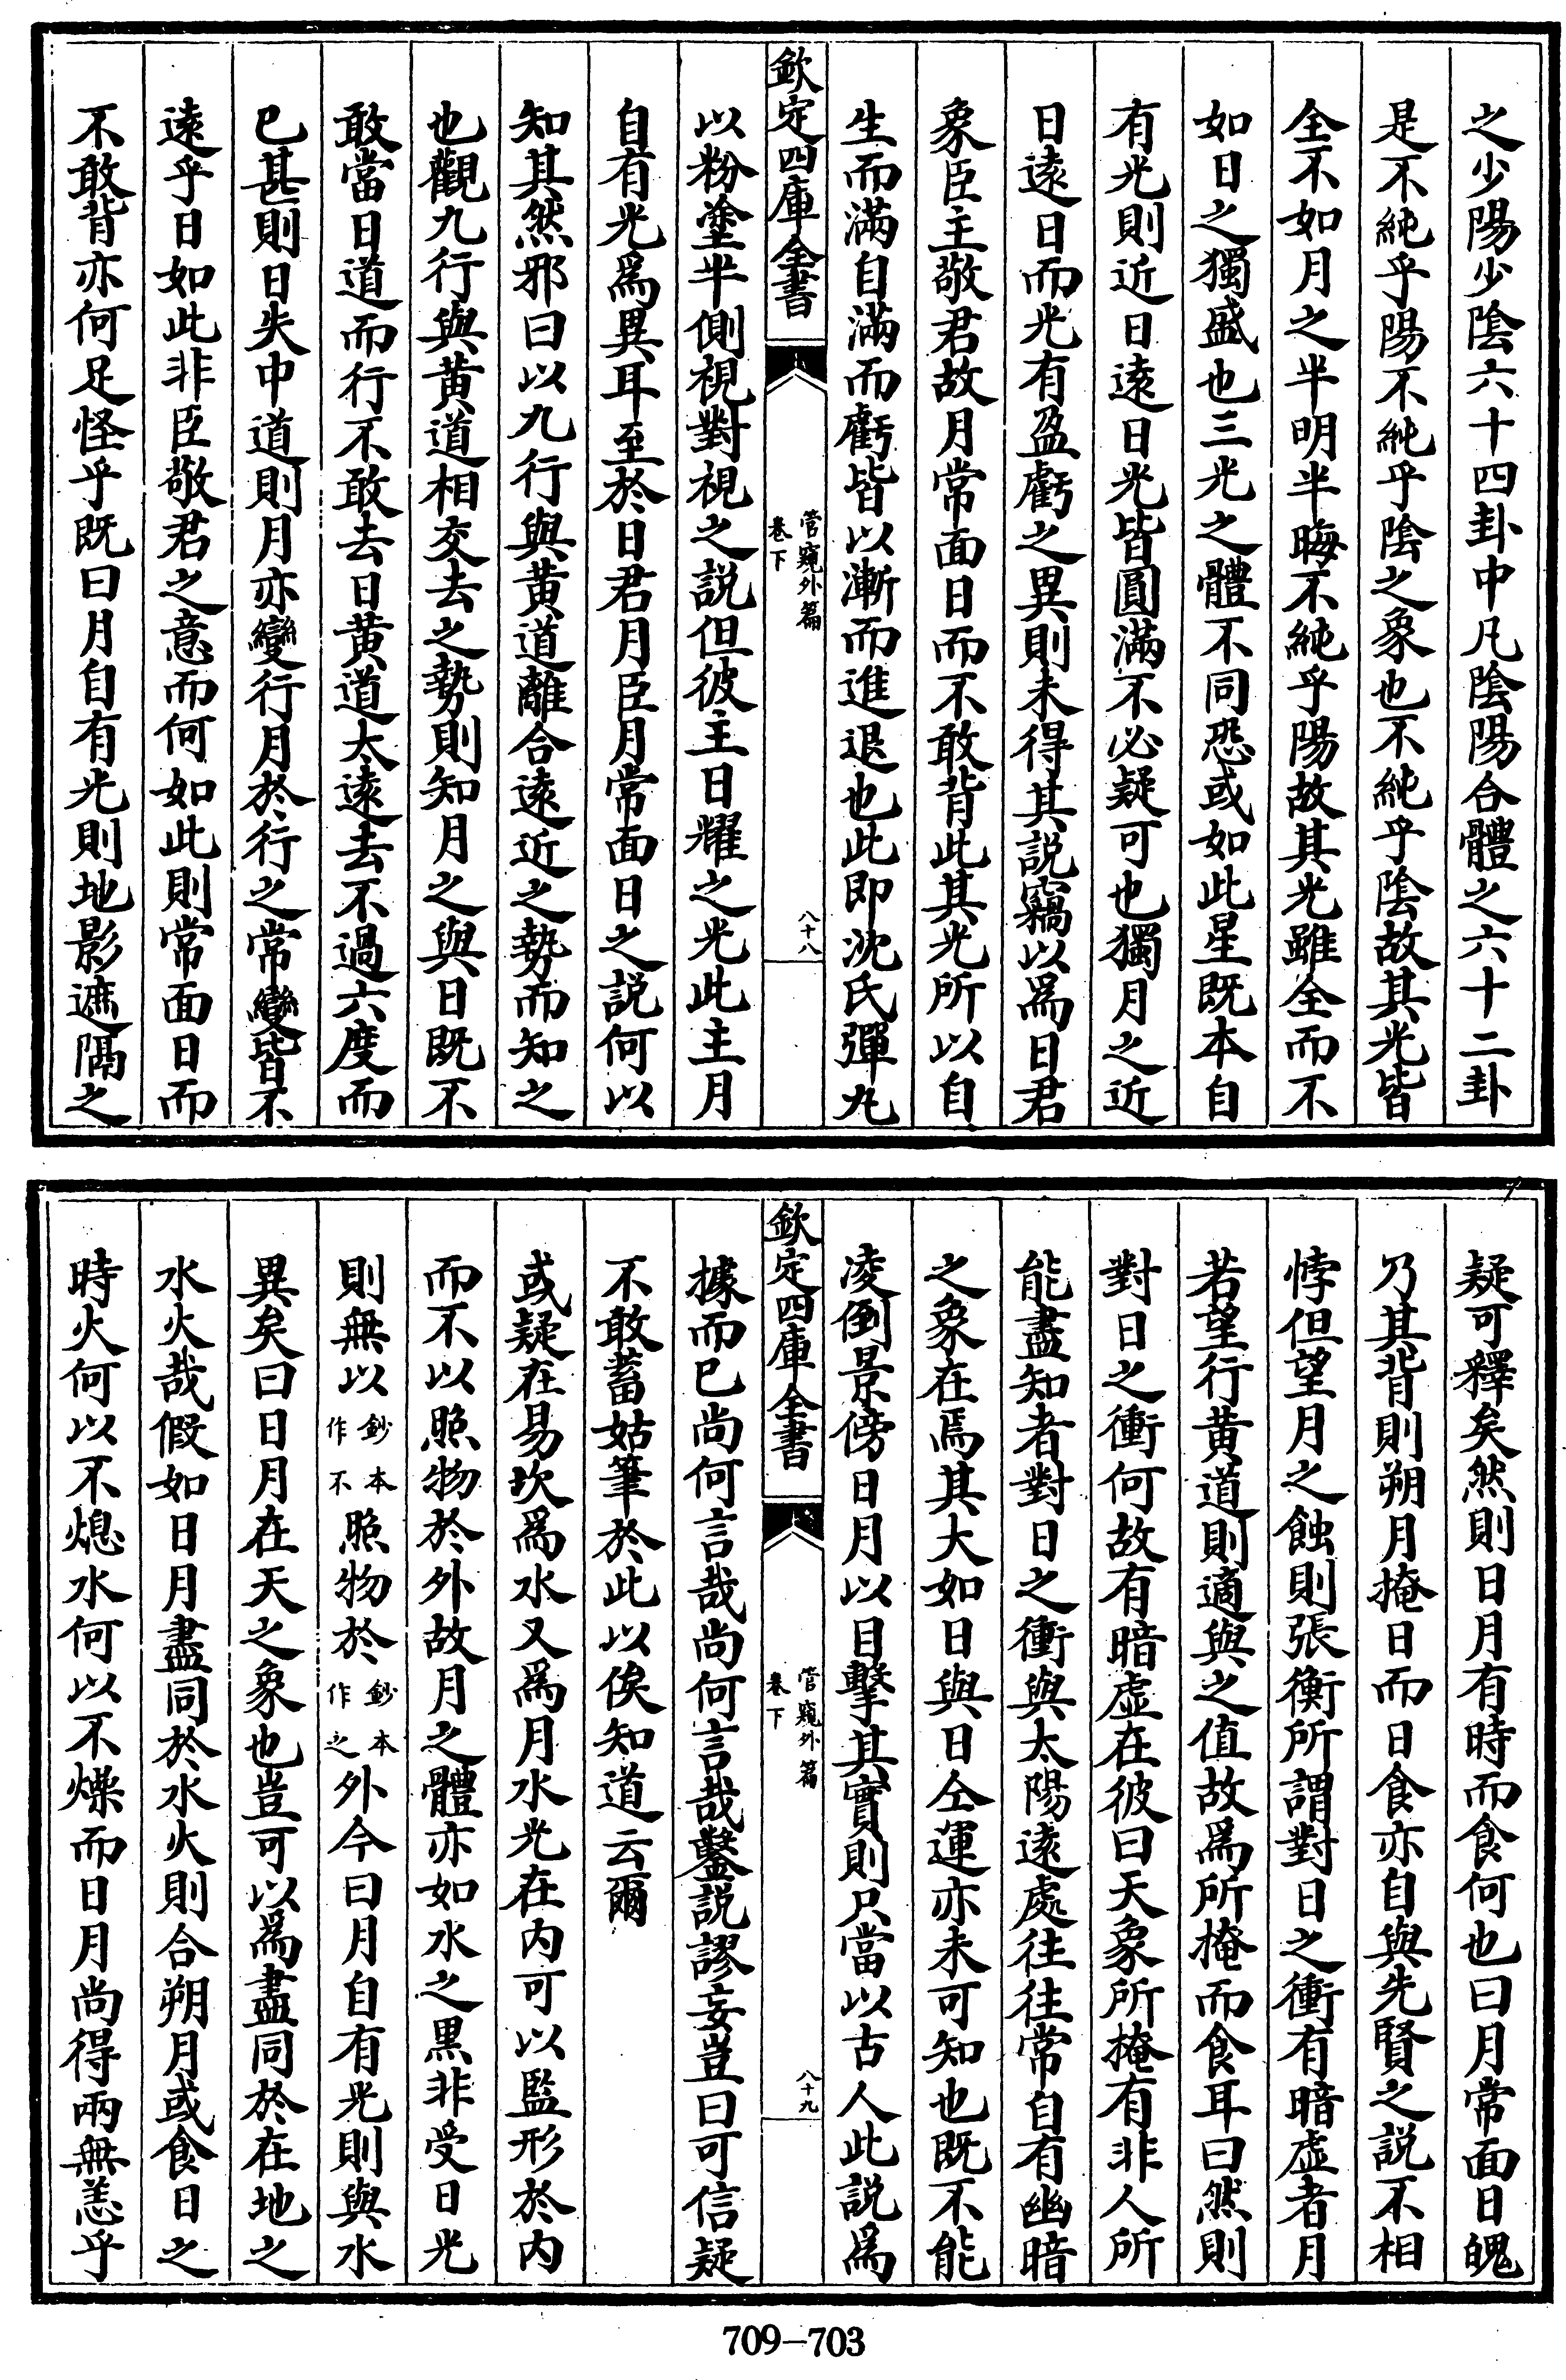 之少陽少陰六十四卦中凡陰陽合體之六十二卦
是不純乎陽不純乎陰之象也不純乎陰故其光皆
全不如月之半明半晦不純乎陽故其光雖全而不
如日之獨盛也三光之體不同恐或如此星既本自
有光則近日逺日光皆圓滿不必疑可也獨月之近
日逺日而光有盈虧之異則未得其説竊以爲日君
象臣主敬君故月常面日而不敢背此其光所以自
生而滿自滿而虧皆以漸而進退也此即沈氏彈丸
欽定四庫全書
管窺外篇
卷下
八十八
以粉塗半側視對視之説但彼主日耀之光此主月
自有光爲異耳至於日君月臣月常面日之説何以
知其然邪曰以九行與黄道離合逺近之勢而知之
也觀九行與黄道相交去之勢則知月之與日既不
敢當日道而行不敢去日黄道太逺去不過六度而
已甚則日失中道則月亦變行月於行之常變皆不
逺乎日如此非臣敬君之意而何如此則常面日而
不敢背亦何足怪乎既曰月自有光則地影遮隔之
疑可釋矣然則日月有時而食何也曰月常面日魄
乃其背則朔月掩日而日食亦自與先賢之説不相
悖但望月之蝕則張衡所謂對日之衝有暗虚者月
若望行黄道則適與之值故爲所掩而食耳曰然則
對日之衝何故有暗虚在彼曰天象所掩有非人所
能盡知者對日之衝與太陽逺處往往常自有幽暗
之象在焉其大如日與日仝運亦未可知也既不能
凌倒景傍日月以目擊其實則只當以古人此説爲
欽定四庫全書
管窺外篇
卷下
八十九
據而已尚何言哉尚何言哉鑿説謬妄豈曰可信疑
不敢蓄姑筆於此以俟知道云爾
或疑在易坎爲水又爲月水光在内可以監形於内
而不以照物於外故月之體亦如水之黒非受日光
則無以鈔本作不照物於鈔本作之外今曰月自有光則與水
異矣曰日月在天之象也豈可以爲盡同於在地之
水火哉假如日月盡同於水火則合朔月或食日之
時火何以不熄水何以不燥而日月尚得兩無恙乎
709-703